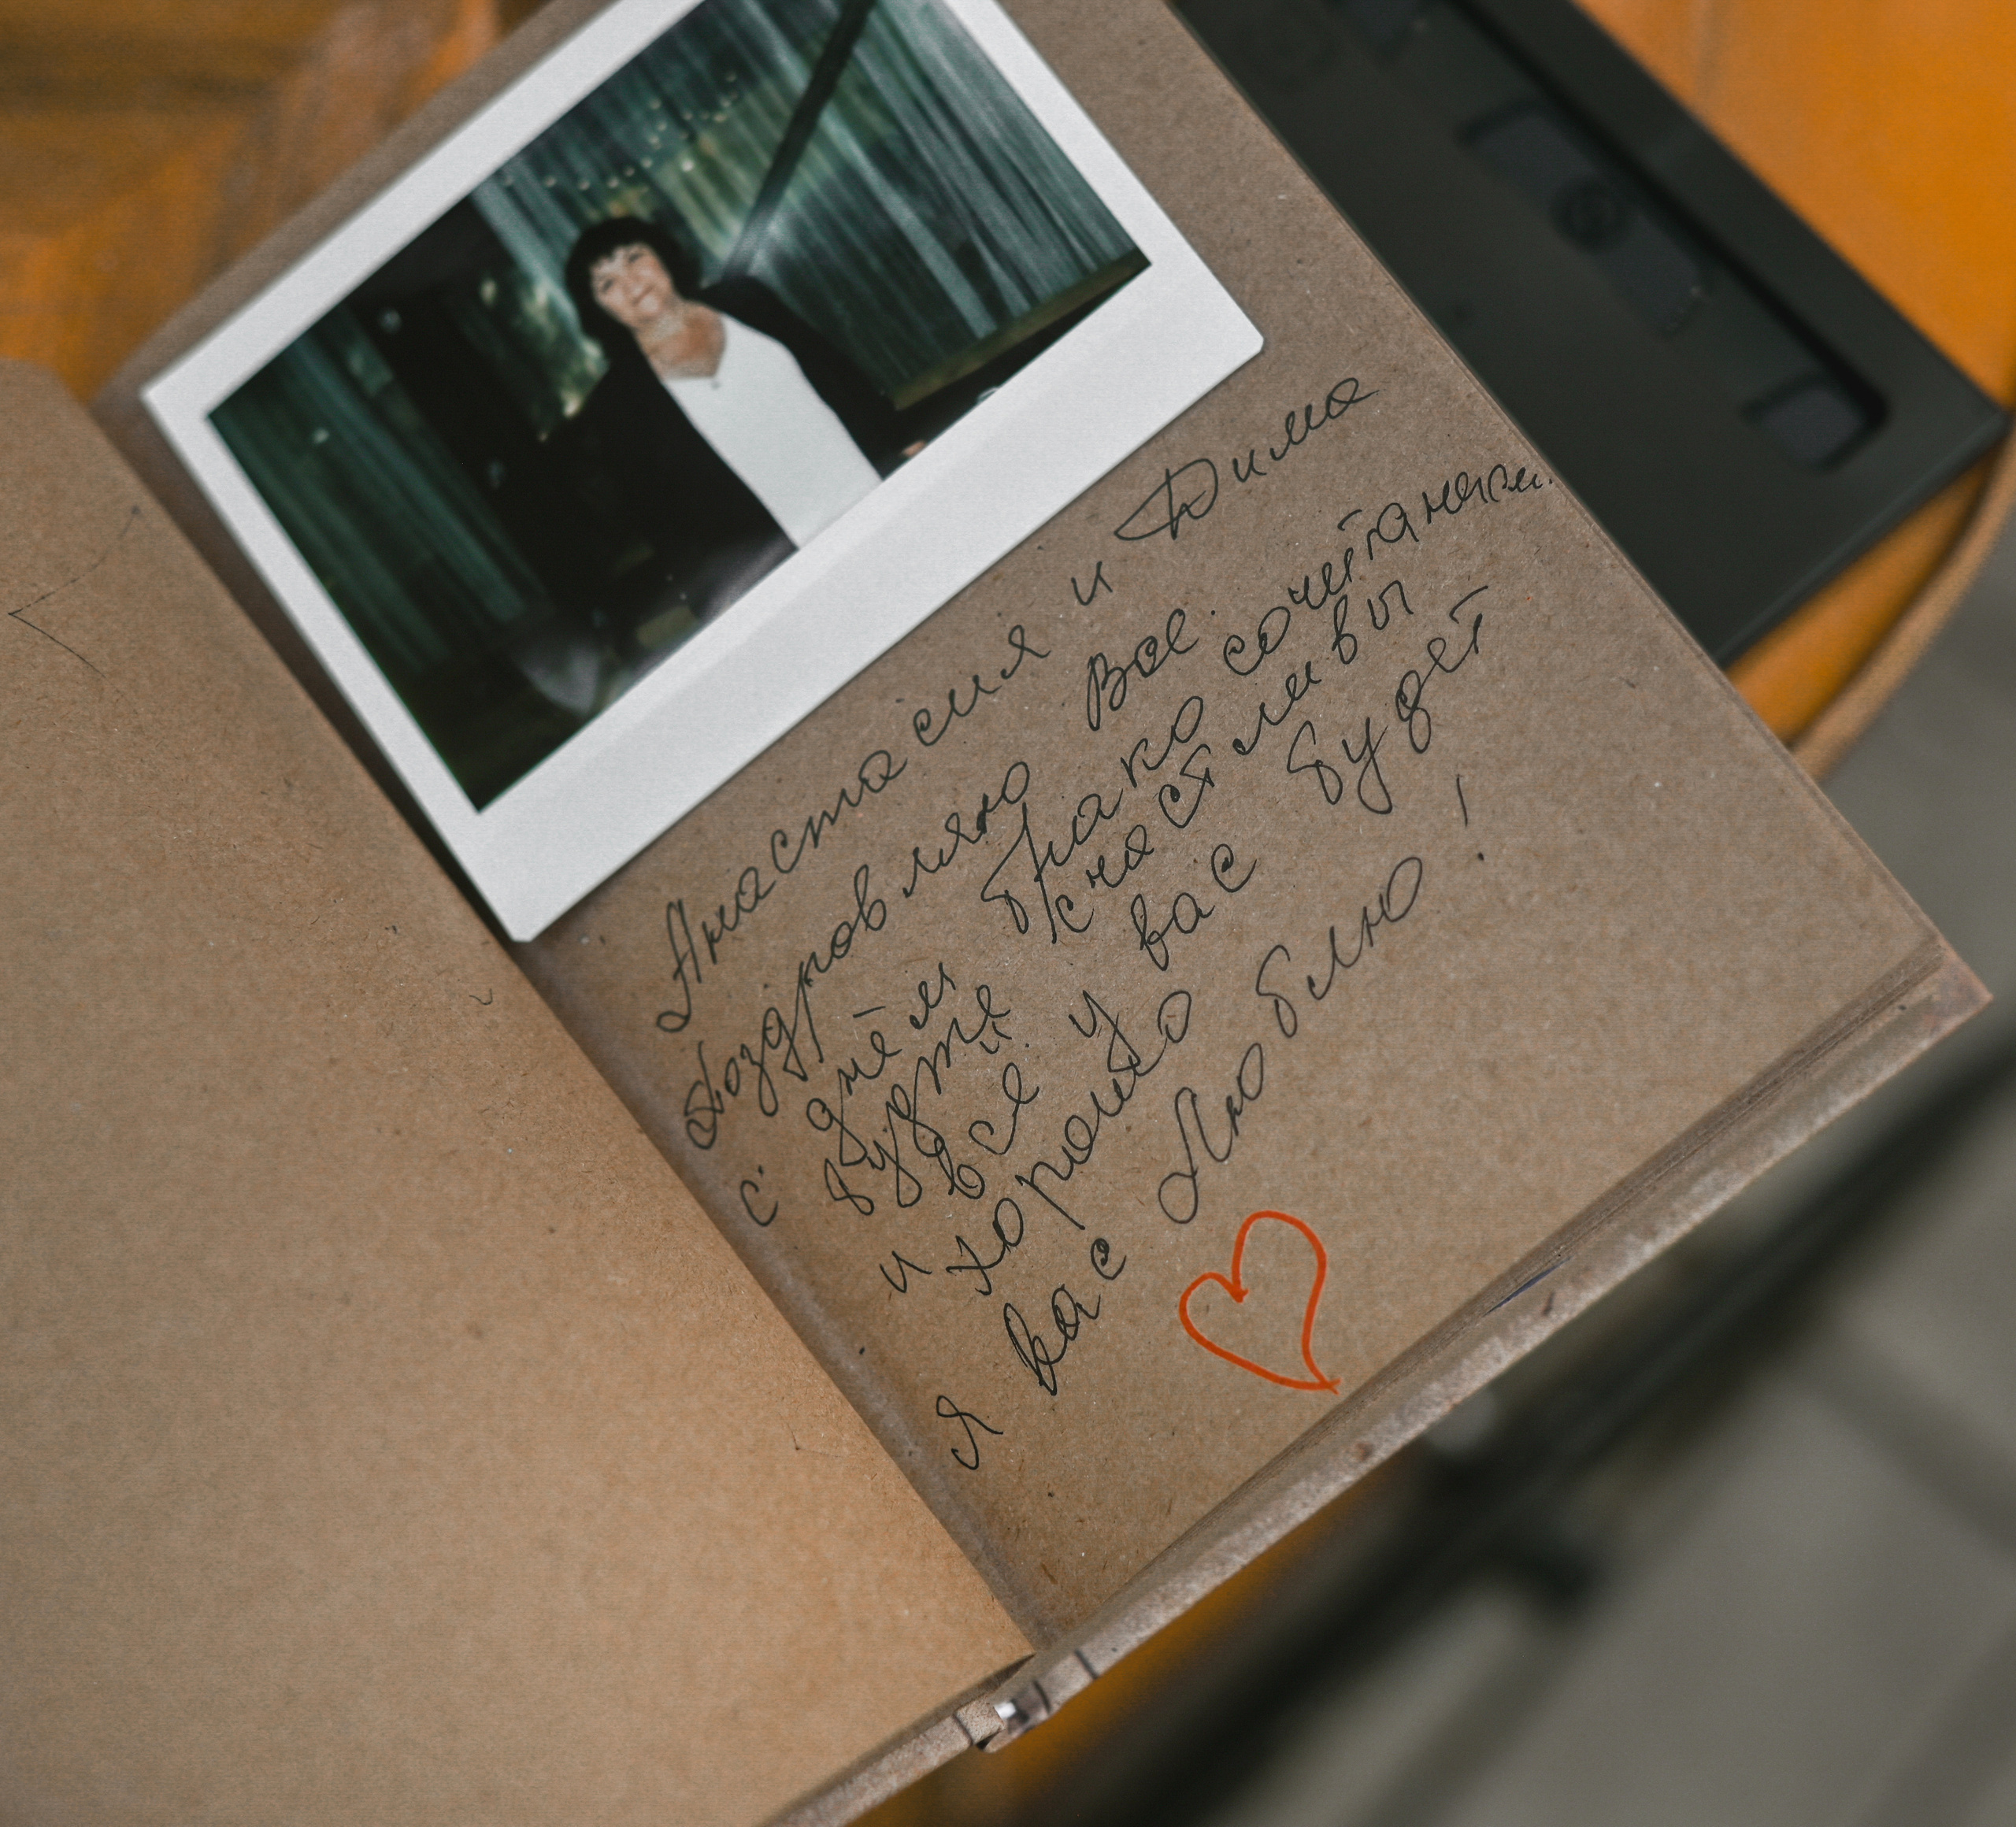 Анастасия и Дима
Поздровляю Вас.
с днём брако сочитания.
будте счастливы
и всё у вас будет
хорошо
я вас Люблю!